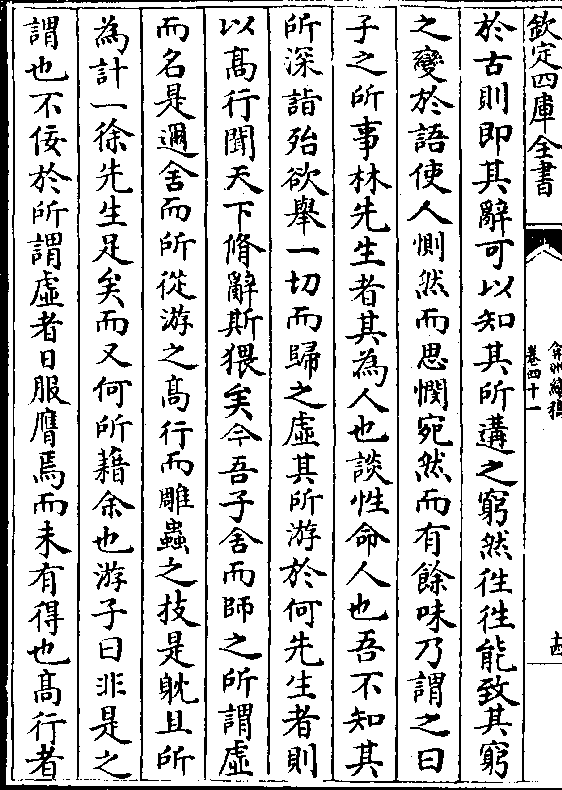 欽定四庫全書
弇州續稿
卷四十一
於古則即其辭可以知其所遘之窮然徃徃能致其窮
之變於語使人惻然而思憫宛然而有餘味乃謂之曰
子之所事林先生者其為人也談性命人也吾不知其
所深詣殆欲舉一切而歸之虛其所游於何先生者則
以髙行聞天下脩辭斯猥矣今吾子舍而師之所謂虛
而名是邇舍而所從游之髙行而雕蟲之技是躭且所
為計一徐先生足矣而又何所藉余也游子曰非是之
謂也不佞於所謂虛者日服膺焉而未有得也髙行者